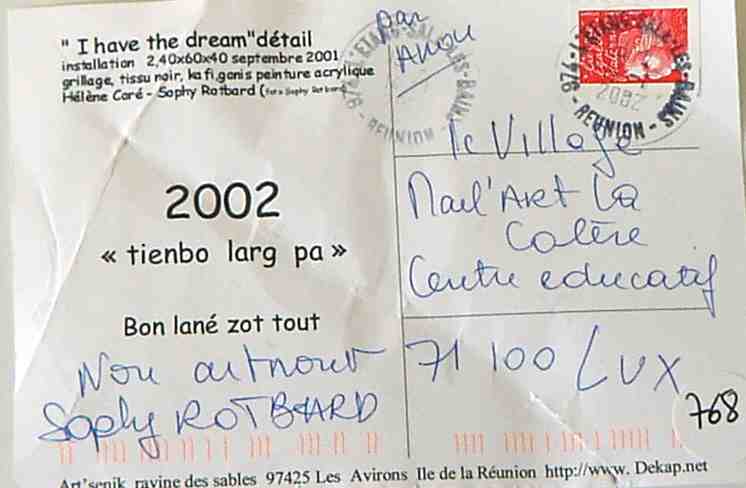 " I have the dream"détail
installation 2,40x60x40 septembre 2001
grillage, tissu noir, kafi,gonis peinture acrylique
Hélène Coré - Sophy Rotbard (foto Sophy Rotbard)
par
Avion
97427 ETANG-SALE-LES-BAINS
REUNION
97427 ETANG-SALE-LES-BAINS
2002
REUNION
2002
« tienbo larg pa »
Bon lané zot tout
Sophy ROTBARD
le Village
Mail'Art La
Colère
Centre educatif
71100 LUX
768
Art'senik ravine des sables 97425 Les Avirons Ile de la Réunion http://www. Dekap.net